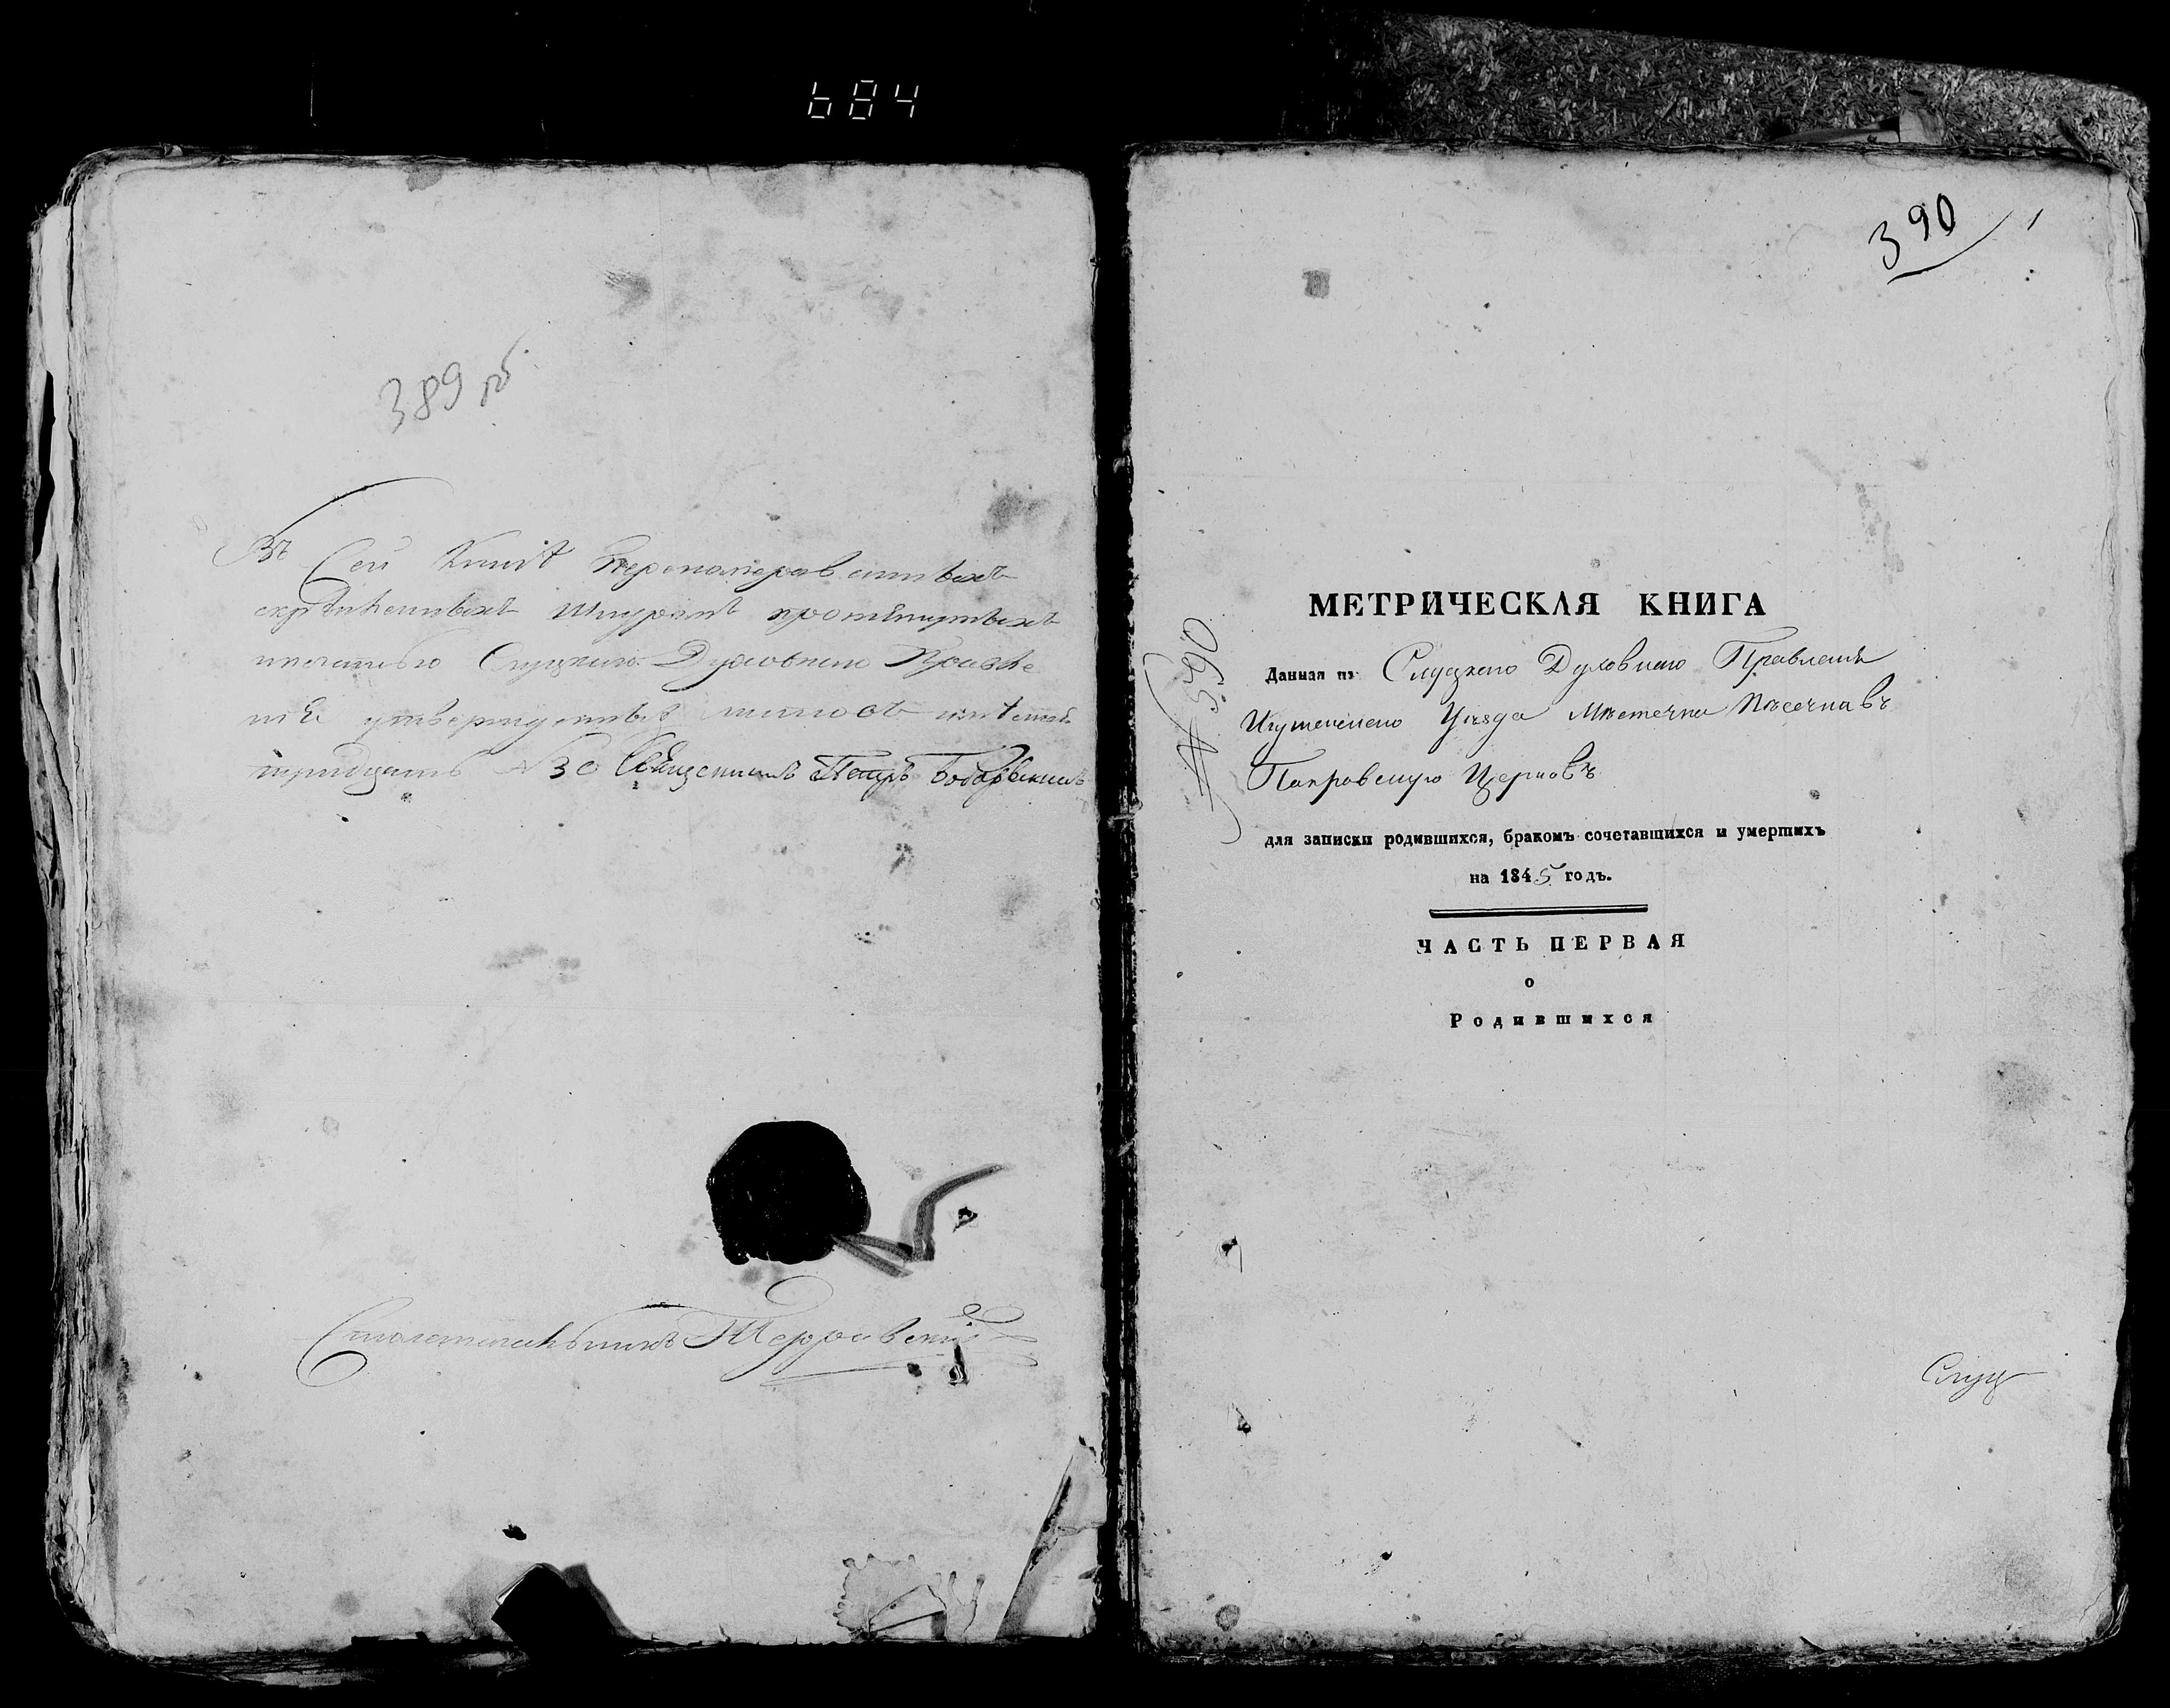 684
389 об
Въ Сей Книгѣ перенамерованныхъ
скрѣпленныхъ Шнуромъ протянутыхъ
и печатью Слуцкаго Духовнаго Правле
нія утвержденныхъ листовъ
тридцать № 30 Священникъ Петръ
Столоначальникъ
390
1
МЕТРИЧЕСКАЯ КНИГА
Данная изъ Слуцкаго Духовнаго Правленія
Игуменскаго Уѣзда Мѣстечка Пѣсечна въ
Покровскую Церковь
для записки родившихся, бракомъ сочетавшихся и умершихъ
на 1845 годъ.
ЧАСТЬ ПЕРВАЯ
о
Родившихся
Слуц